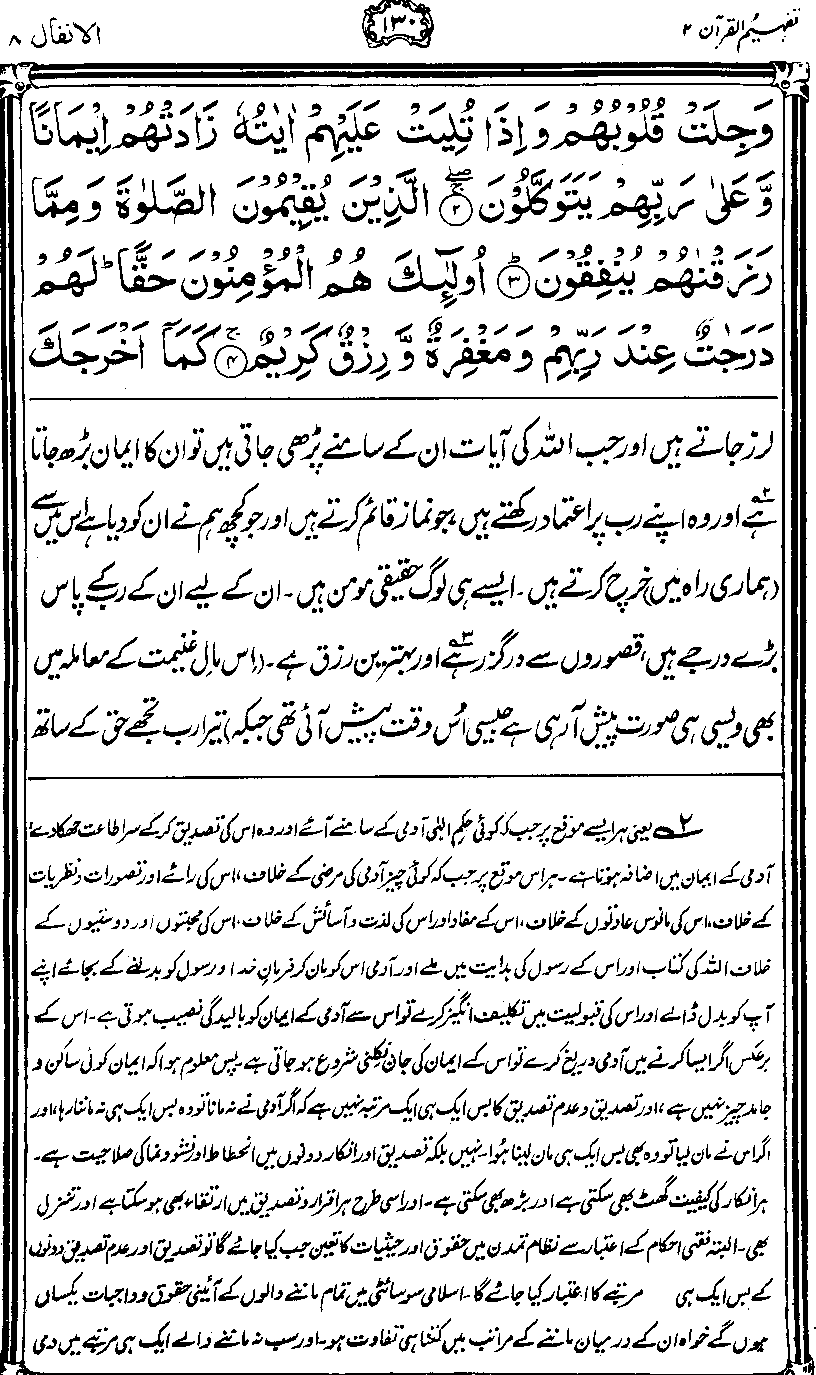 تفہیم القرآن ۲
۱۳۰
الانفال ۸
وَجِلَتْ قُلُوْبُهُمْ وَاِذَا تُلِيَتْ عَلَيْهِمْ اٰيٰتُهٗ زَادَتْهُمْ اِيْمَانًا
وَّعَلٰى رَبِّهِمْ يَتَوَكَّلُوْنَ ۚۖ﴿۲﴾ الَّذِيْنَ يُقِيْمُوْنَ الصَّلٰوةَ وَمِمَّا
رَزَقْنٰهُمْ يُنْفِقُوْنَ ؕ﴿۳﴾ اُولٰٓئِكَ هُمُ الْمُؤْمِنُوْنَ حَقًّا ؕ لَهُمْ
دَرَجٰتٌ عِنْدَ رَبِّهِمْ وَمَغْفِرَةٌ وَّرِزْقٌ كَرِيْمٌ ۚ﴿۴﴾ كَمَاۤ اَخْرَجَكَ
لرز جاتے ہیں اور جب اللہ کی آیات ان کے سامنے پڑھی جاتی ہیں تو ان کا ایمان بڑھ جاتا
ہے۲ اور وہ اپنے رب پر اعتماد رکھتے ہیں، جو نماز قائم کرتے ہیں اور جو کچھ ہم نے ان کو دیا ہے اس میں سے
(ہماری راہ میں) خرچ کرتے ہیں۔ ایسے ہی لوگ حقیقی مومن ہیں۔ ان کے لیے ان کے رب کے پاس
بڑے درجے ہیں، قصوروں سے درگزر ہے۳ اور بہترین رزق ہے۔ (اس مالِ غنیمت کے معاملہ میں
بھی ویسی ہی صورت پیش آ رہی ہے جیسی اُس وقت پیش آئی تھی جبکہ) تیرا رب تجھے حق کے ساتھ
۲ یعنی ہر ایسے موقع پر جب کہ کوئی حکمِ الٰہی آدمی کے سامنے آئے اور وہ اس کی تصدیق کر کے سرِ اطاعت جھکا دے،
آدمی کے ایمان میں اضافہ ہوتا ہے۔ ہر اس موقع پر جب کہ کوئی چیز آدمی کی مرضی کے خلاف، اس کی رائے اور تصورات و نظریات
کے خلاف، اس کی مانوس عادتوں کے خلاف، اس کے مفاد اور اس کی لذت و آسائش کے خلاف، اس کی محبتوں اور دوستیوں کے
خلاف اللہ کی کتاب اور اس کے رسول کی ہدایت میں ملے اور آدمی اس کو مان کر فرمانِ خدا و رسول کو بدلنے کے بجائے اپنے
آپ کو بدل ڈالے اور اس کی قبولیت میں تکلیف انگیز کرے تو اس سے آدمی کے ایمان کو بالیدگی نصیب ہوتی ہے۔ اس کے
برعکس اگر ایسا کرنے میں آدمی دریغ کرے تو اس کے ایمان کی جان نکلنی شروع ہو جاتی ہے۔ پس معلوم ہوا کہ ایمان کوئی ساکن و
جامد چیز نہیں ہے، اور تصدیق و عدم تصدیق کا بس ایک ہی ایک مرتبہ نہیں ہے کہ اگر آدمی نے نہ مانا تو وہ بس ایک ہی نہ ماننا رہا، اور
اگر اس نے مان لیا تو وہ بھی بس ایک ہی مان لینا ہوا۔ نہیں بلکہ تصدیق اور انکار دونوں میں انحطاط اور نشوونما کی صلاحیت ہے۔
ہر انکار کی کیفیت گھٹ بھی سکتی ہے اور بڑھ بھی سکتی ہے۔ اور اسی طرح ہر اقرار و تصدیق میں ارتقاء بھی ہو سکتا ہے اور تنزل
بھی۔ البتہ فقہی احکام کے اعتبار سے نظامِ تمدن میں حقوق اور حیثیات کا تعین جب کیا جائے گا تو تصدیق اور عدم تصدیق دونوں
کے بس ایک ہی مرتبے کا اعتبار کیا جائے گا۔ اسلامی سوسائٹی میں تمام ماننے والوں کے آئینی حقوق و واجبات یکساں
ہوں گے خواہ ان کے درمیان ماننے کے مراتب میں کتنا ہی تفاوت ہو۔ اور سب نہ ماننے والے ایک ہی مرتبے میں ذمی